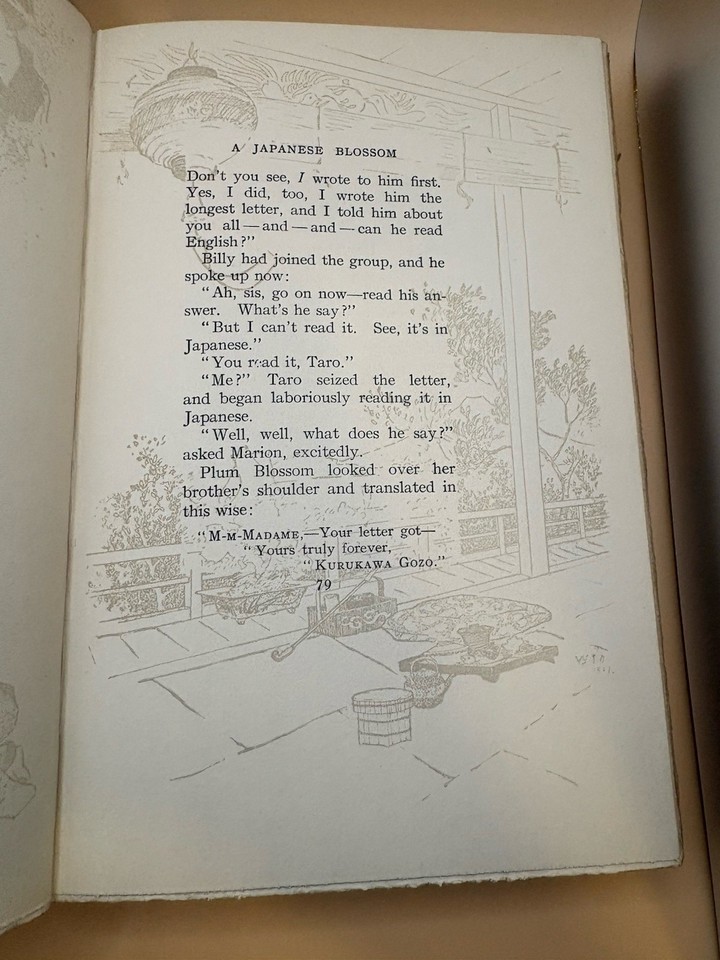 A JAPANESE BLOSSOM
Don't you see, I wrote to him first.
Yes, I did, too, I wrote him the
longest letter, and I told him about
you all — and — and — can he read
English?"
Billy had joined the group, and he
spoke up now:
"Ah, sis, go on now—read his an-
swer. What's he say?"
"But I can't read it. See, it's in
Japanese."
"You read it, Taro."
"Me?" Taro seized the letter,
and began laboriously reading it in
Japanese.
"Well, well, what does he say?"
asked Marion, excitedly.
Plum Blossom looked over her
brother's shoulder and translated in
this wise:
"M-M-MADAME,—Your letter got—
"Yours truly forever,
"KURUKAWA GOZO."
79